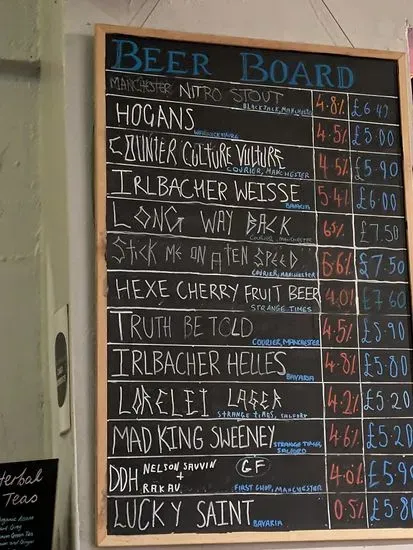 BEER BOARD
MANCHESTER NITRO STOUT BLACKJACK, MANCHESTER 4.8% £6.40
HOGANS WARWICKSHIRE 4.5% £5.00
COUNTER CULTURE VULTURE COURIER, MANCHESTER 4.5% £5.90
IRLBACHER WEISSE BAVARIA 5.4% £6.00
LONG WAY BACK COURIER, MANCHESTER 6% £7.50
STICK ME ON A TEN SPEED COURIER, MANCHESTER 6.6% £7.50
HEXE CHERRY FRUIT BEER STRANGE TIMES 4.0% £7.60
TRUTH BE TOLD COURIER, MANCHESTER 4.5% £5.90
IRLBACHER HELLES BAVARIA 4.8% £5.80
LORELEI LAGER STRANGE TIMES, SALFORD 4.2% £5.20
MAD KING SWEENEY STRANGE TIMES, SALFORD 4.6% £5.20
DDH NELSON SAUVIN + RAKAU GF FIRST CHOP, MANCHESTER 4.0% £5.90
LUCKY SAINT BAVARIA 0.5% £5.80
Herbal
Teas